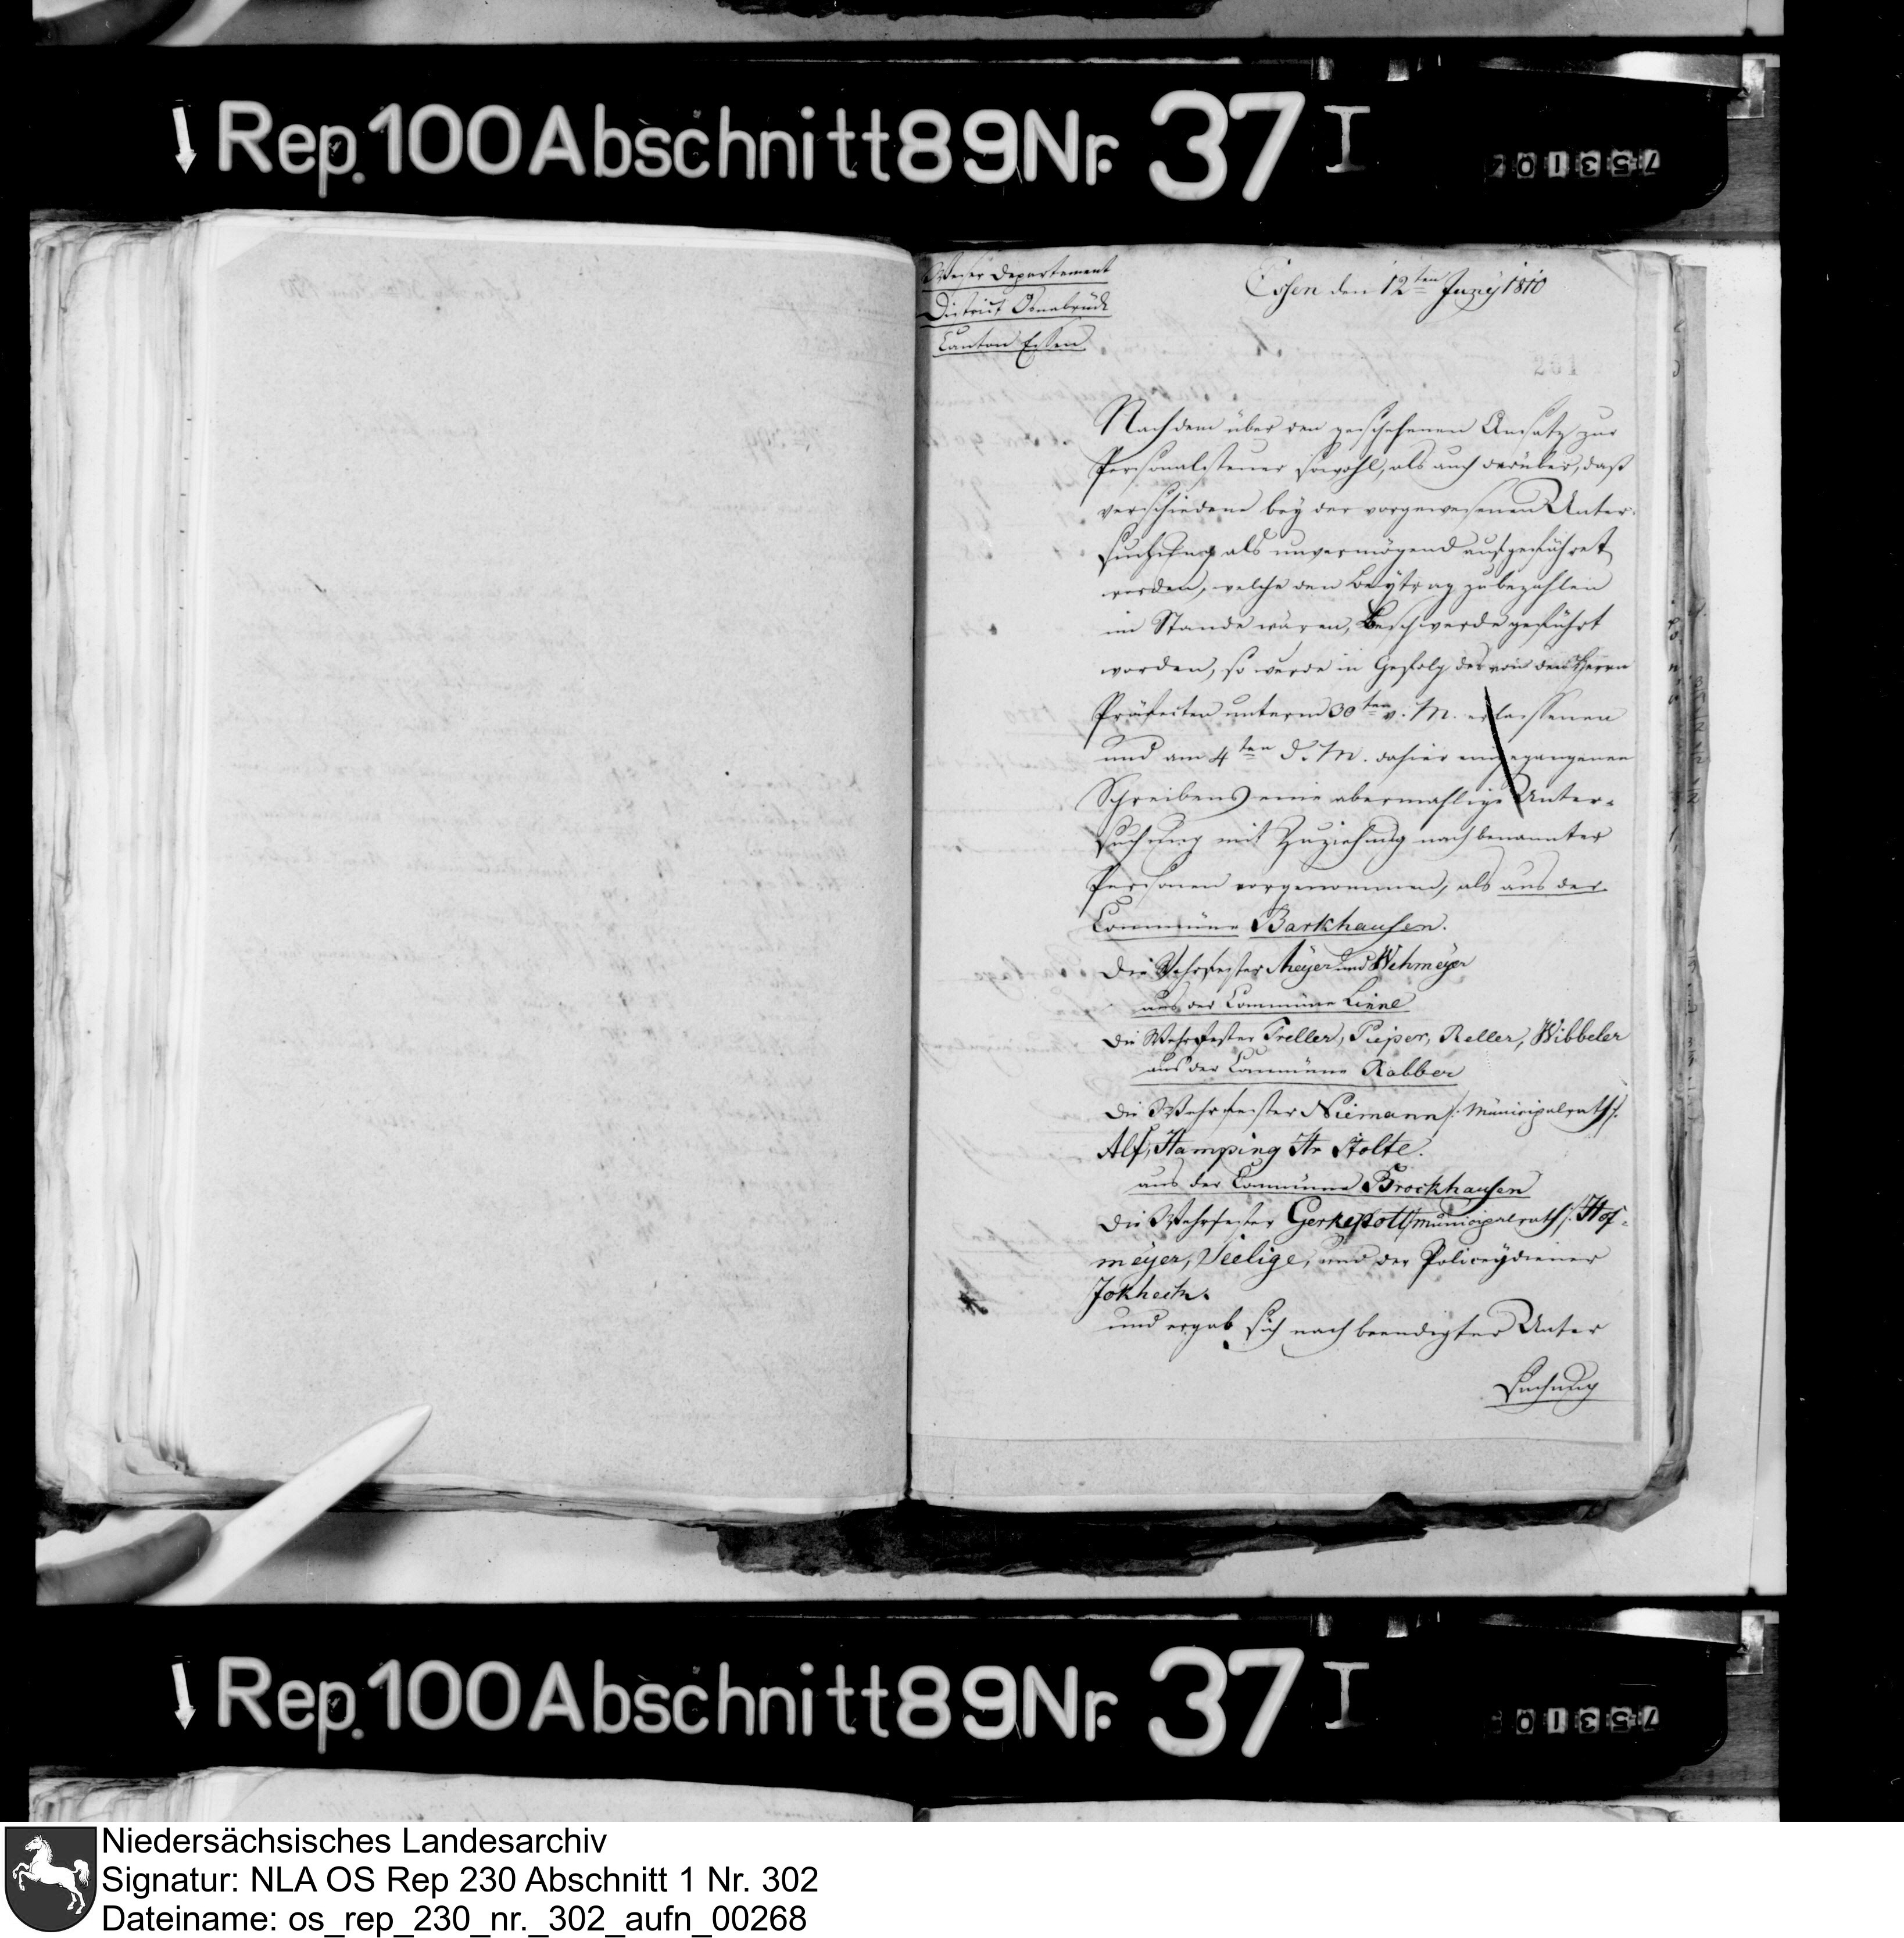 Rep. 100 Abschnitt 89 Nr. 37 I
753102
Weser Departement
District Osnabrück
Canton Essen
Essen den 12ten Juny 1810
201
Nachdem über den geschehenen Ansatz zur
Personalsteuer sowohl, als auch darüber, daß
verschiedene bey der vorgewesenen Unter-
suchung als unvermögend aufgeführet
worden, welche den Beytrag zubezahlen
im Stande wären, Beschwerde geführt
worden, so wurde in Gefolg des von dem Herrn
Präfecten unterm 30ten v. M. erlassenen
und am 4ten d. M. dahier eingegangenen
Schreibens eine abermahlige Unter-
suchung mit Zuziehung nachbenannter
Personen vorgenommen, als aus der
Commüne Barkhausen.
Die Wehrfester Meyer und Wehmeyer
aus der Commüne Linne
Die Wehrfester Treller, Pieper, Reller, Wibbeler
aus der Commüne Rabber
Die Wehrfester Niemann /: Municipalrath :/
Alf, Hamping Hr Stolte.
aus der Commüne Brockhausen
Die Wehrfester Gerkepott /: municipalrath :/ Hof-
meyer, Seelige, und der Policeydiener
Jokheim.
und ergab sich nach beendigter Unter
suchung
Rep. 100 Abschnitt 89 Nr. 37 I
75310
Niedersächsisches Landesarchiv
Signatur: NLA OS Rep 230 Abschnitt 1 Nr. 302
Dateiname: os_rep_230_nr._302_aufn_00268